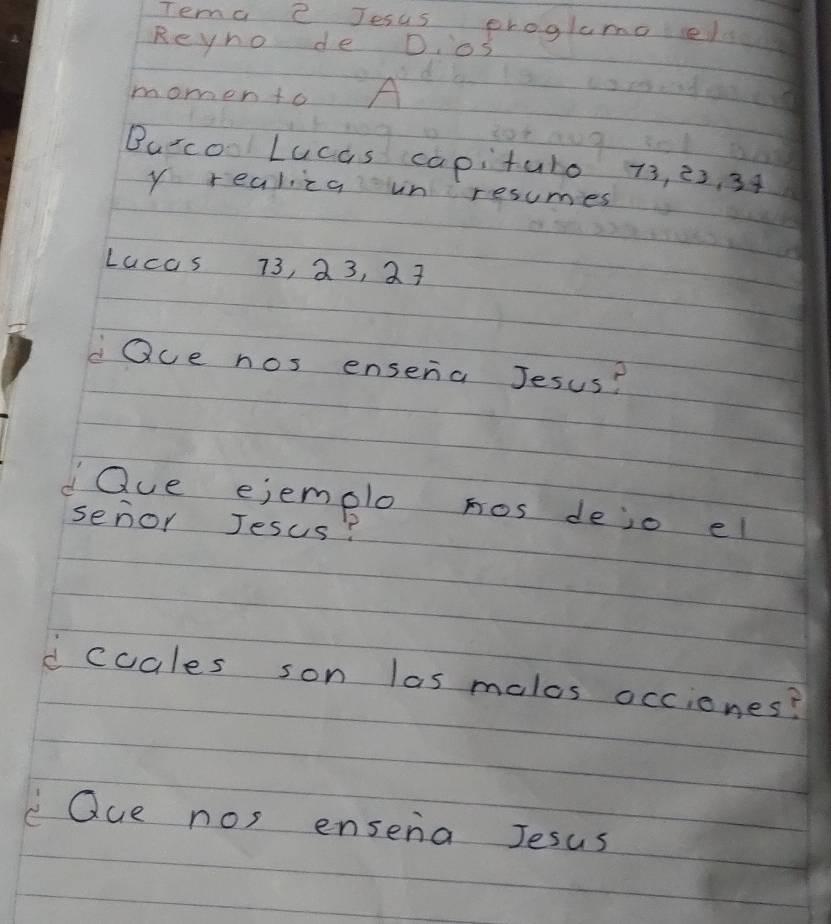 Tema 2 Jesus proglamo el
Reyno de Dios
momento A
Busco Lucas capitulo 13, 23, 34
y realiza un resumes
Lucas 13, 23, 27
¿Que nos enseña Jesus?
¿Que ejemplo nos dejo el
señor Jesus?
¿cuales son las malas acciones?
¿Que nos enseña Jesus